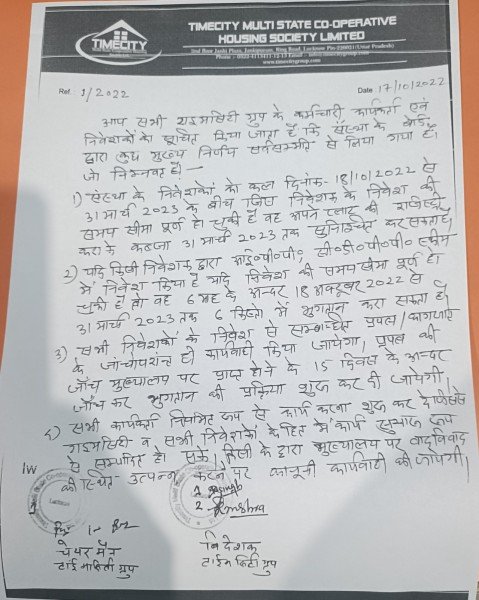 TIMECITY
TIMECITY MULTI STATE CO-OPERATIVE
HOUSING SOCIETY LIMITED
2nd floor Janki Plaza, Jankipuram, Ring Road, Lucknow Pin-226021 (Uttar Pradesh)
Ref: 1/2022
Date 17/10/2022
आप सभी टाइमसिटी ग्रुप के कर्मचारी, कार्यकर्ता एवं
निवेशकों को सूचित किया जाता है कि संस्था के बोर्ड
द्वारा कुछ मुख्य निर्णय सर्वसम्मति से लिया गया है।
जो निम्नवत है:—
1) संस्था के निवेशकों को कल दिनांक- 18/10/2022 से
31 मार्च 2023 के बीच जिस निवेशक के निवेश की
समय सीमा पूर्ण हो चुकी है वह अपने प्लाट की रजिस्ट्री
कराके कब्जा 31 मार्च 2023 तक सुनिश्चित कर सकता है।
2) यदि किसी निवेशक द्वारा आई०पी०पी०, सी०डी०पी०पी० स्कीम
में निवेश किया है यदि निवेश की समय सीमा पूर्ण हो
चुकी है तो वह 6 माह के अन्दर 18 अक्टूबर 2022 से
31 मार्च 2023 तक 6 किस्तों में भुगतान करा सकता है।
3) सभी निवेशकों के निवेश से सम्बन्धित प्रपत्र / कागजात
के जांचोपरांत ही कार्यवाही किया जायेगा, प्रपत्र की
जाँच मुख्यालय पर प्राप्त होने के 15 दिवस के अन्दर
जाँच कर भुगतान की प्रक्रिया शुरू कर दी जायेगी।
4) सभी कार्यकर्ता नियमित रूप से कार्य करना शुरू कर दे जिससे
टाइमसिटी व सभी निवेशकों के हित में कार्य सुचारू रूप
से सम्पादित हो सके। किसी के द्वारा मुख्यालय पर वादविवाद
की स्थिति उत्पन्न करने पर कानूनी कार्यवाही की जायेगी।
1.
2.
चेयरमैन
टाईमसिटी ग्रुप
निदेशक
टाईमसिटी ग्रुप